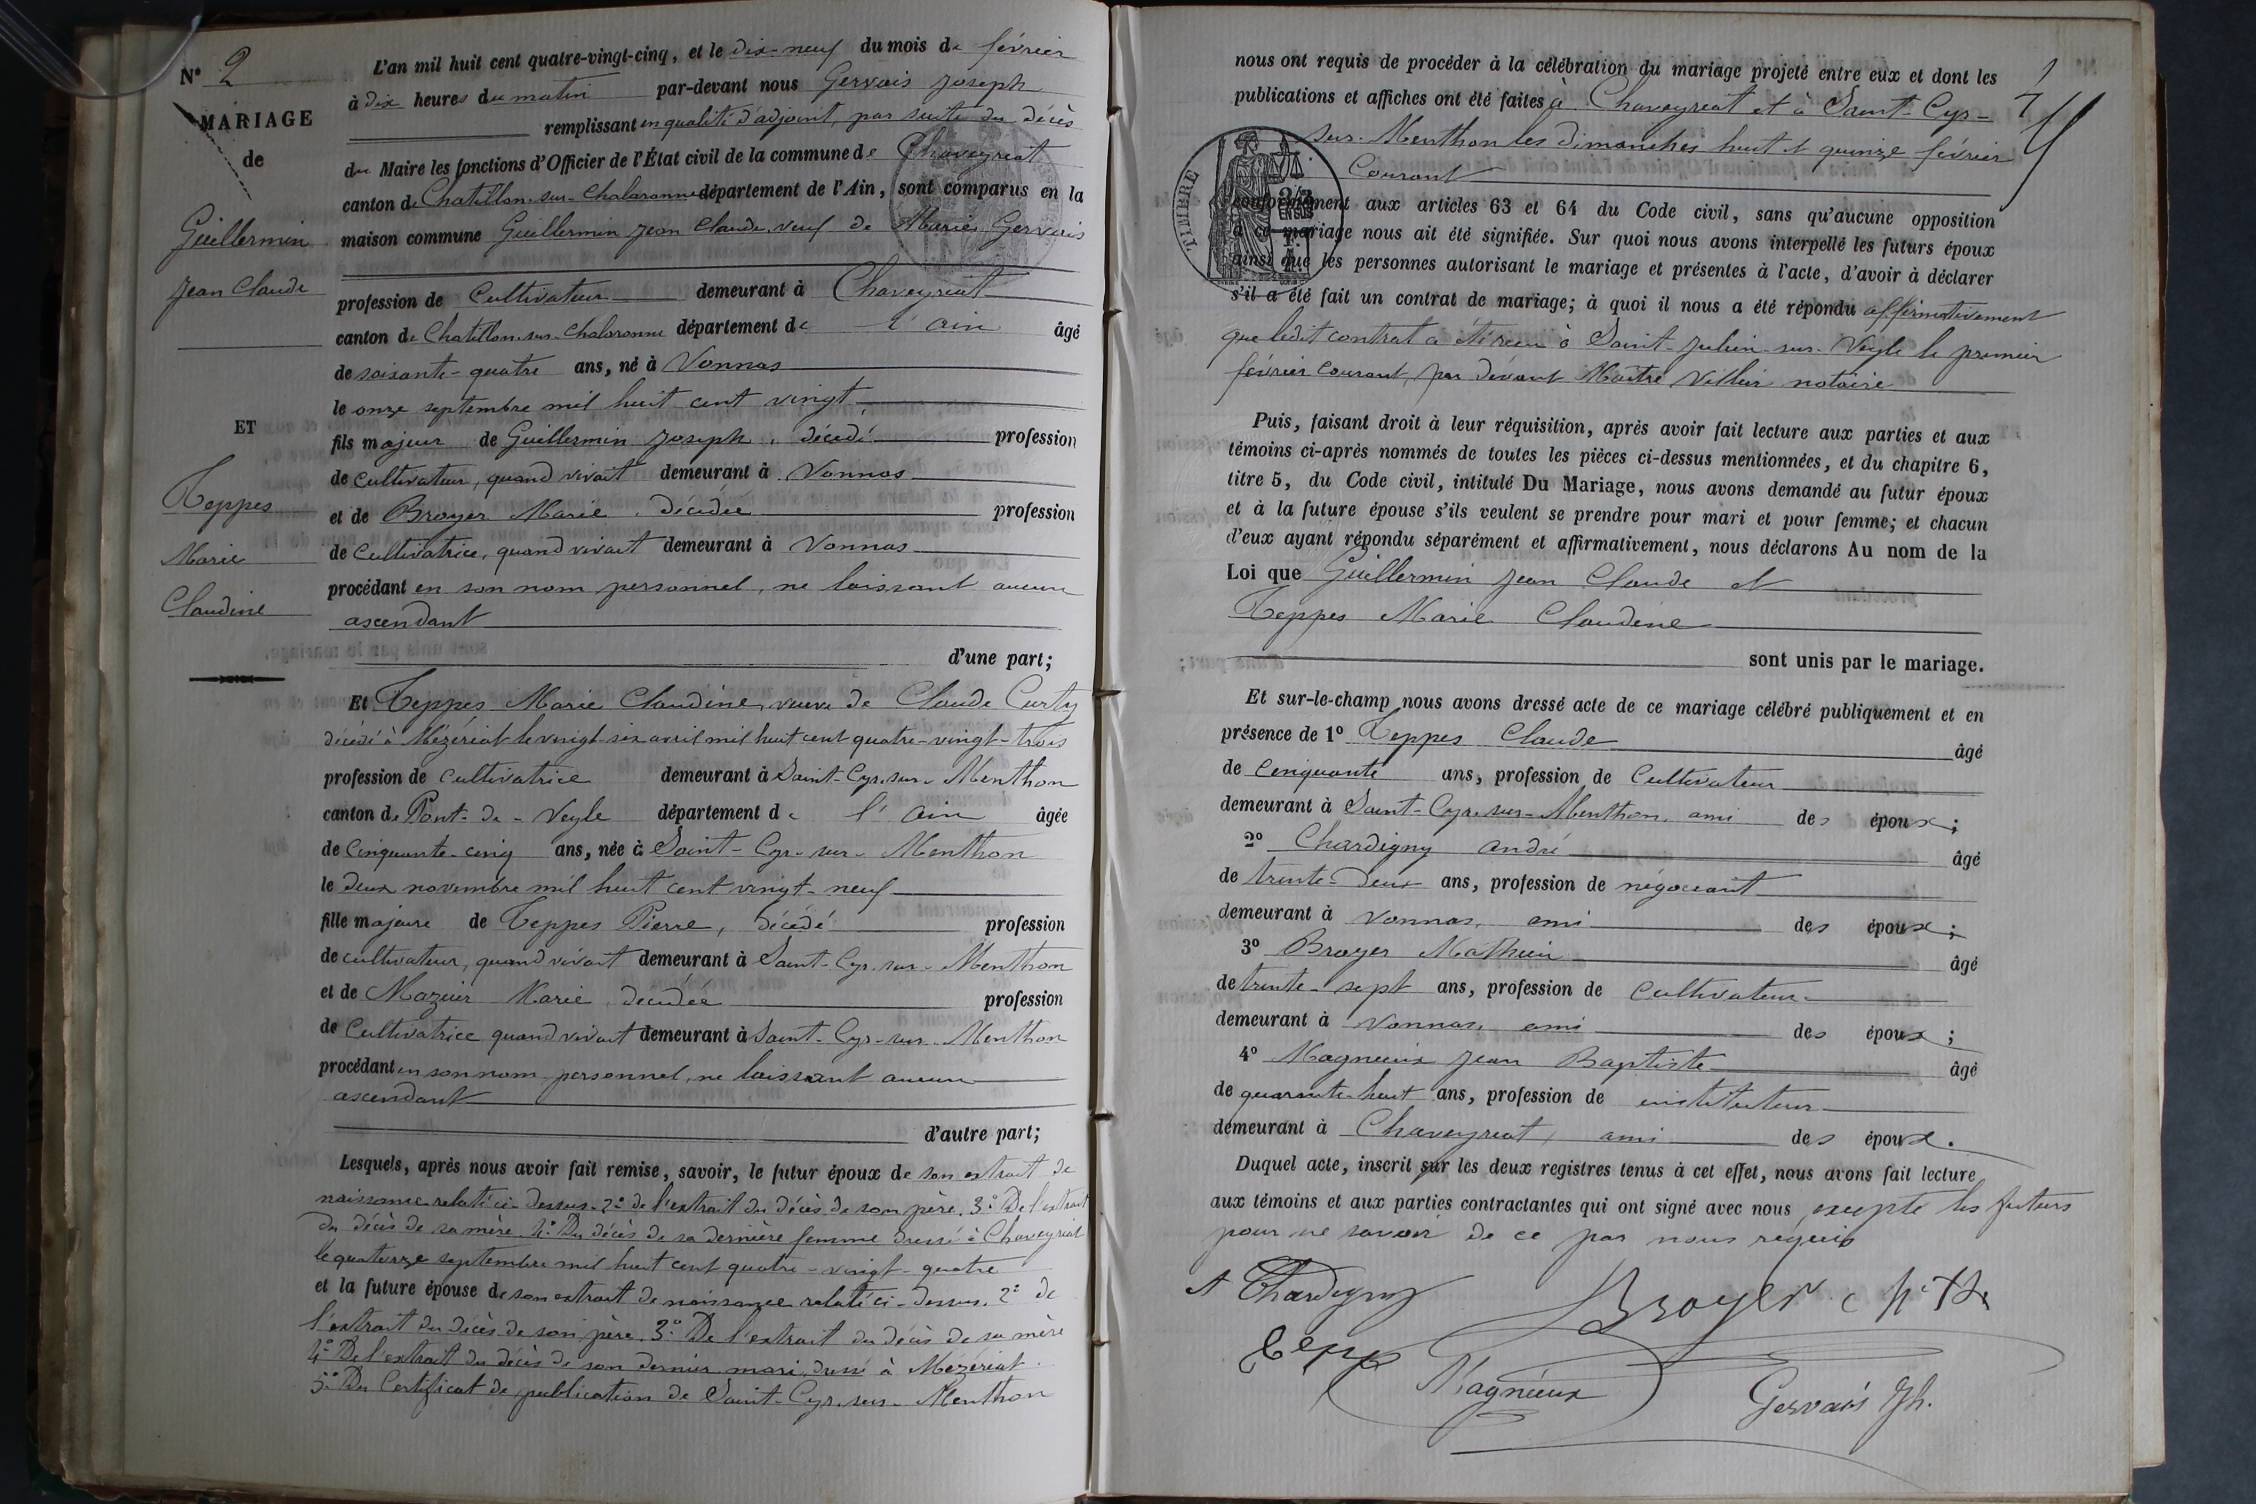 N° 2
MARIAGE
de
Guillermin
Jean Claude
ET
Teppes
Marie
Claudine
L'an mil huit cent quatre-vingt-cinq, et le dix-neuf du mois de février
à dix heures du matin par-devant nous Gervais Joseph
remplissant en qualité d'adjoint, par suite du décès
du Maire les fonctions d'Officier de l'État civil de la commune de Chaveyriat
canton de Chatillon-sur-Chalaronne département de l'Ain, sont comparus en la
maison commune Guillermin Jean Claude, veuf de Marie Gervais
profession de Cultivateur demeurant à Chaveyriat
canton de Chatillon-sur-Chalaronne département de l'ain âgé
de soixante-quatre ans, né à Vonnas
le onze septembre mil huit cent vingt
fils majeur de Guillermin Joseph, décédé profession
de cultivateur, quand vivait demeurant à Vonnas
et de Broyer Marie, décédée profession
de cultivatrice, quand vivait demeurant à Vonnas
procédant en son nom personnel, ne laissant aucun
ascendant
d'une part;
Et Teppes Marie Claudine, veuve de Claude Curty
décédé à Mézériat le vingt-six avril mil huit cent quatre-vingt-trois
profession de cultivatrice demeurant à Saint-Cyr-sur-Menthon
canton de Pont-de-Veyle département de l'ain âgée
de Cinquante-cinq ans, née à Saint-Cyr-sur-Menthon
le deux novembre mil huit cent vingt-neuf
fille majeure de Teppes Pierre, décédé profession
de cultivateur, quand vivait demeurant à Saint-Cyr-sur-Menthon
et de Mazuir Marie, décédée profession
de Cultivatrice quand vivait demeurant à Saint-Cyr-sur-Menthon
procédant en son nom personnel, ne laissant aucun
ascendant
d'autre part;
Lesquels, après nous avoir fait remise, savoir, le futur époux de son extrait de
naissance relaté ci-dessus. 2° de l'extrait du décès de son père. 3° De l'extrait
du décès de sa mère. 4° Du décès de sa dernière femme dressé à Chaveyriat
le quatorze septembre mil huit cent quatre-vingt-quatre
et la future épouse de son extrait de naissance relaté ci-dessus. 2° de
l'extrait du décès de son père. 3° De l'extrait du décès de sa mère
4° De l'extrait du décès de son dernier mari, dressé à Mézériat.
5° Du Certificat de publication de Saint-Cyr-sur-Menthon
nous ont requis de procéder à la célébration du mariage projeté entre eux et dont les
publications et affiches ont été faites à Chaveyriat et à Saint-Cyr-
sur-Menthon les dimanches huit et quinze février
Courant
TIMBRE
EN SUS
conformément aux articles 63 et 64 du Code civil, sans qu'aucune opposition
à ce mariage nous ait été signifiée. Sur quoi nous avons interpellé les futurs époux
ainsi que les personnes autorisant le mariage et présentes à l'acte, d'avoir à déclarer
s'il a été fait un contrat de mariage; à quoi il nous a été répondu affirmativement
que ledit contrat a été reçu à Saint-Julien-sur-Veyle le premier
février courant, par devant Maître notaire
Puis, faisant droit à leur réquisition, après avoir fait lecture aux parties et aux
témoins ci-après nommés de toutes les pièces ci-dessus mentionnées, et du chapitre 6,
titre 5, du Code civil, intitulé Du Mariage, nous avons demandé au futur époux
et à la future épouse s'ils veulent se prendre pour mari et pour femme; et chacun
d'eux ayant répondu séparément et affirmativement, nous déclarons Au nom de la
Loi que Guillermin Jean Claude et
Teppes Marie Claudine
sont unis par le mariage.
Et sur-le-champ nous avons dressé acte de ce mariage célébré publiquement et en
présence de 1° Teppes Claude âgé
de cinquante ans, profession de Cultivateur
demeurant à Saint-Cyr-sur-Menthon, ami des époux;
2° Chardigny André âgé
de trente-deux ans, profession de négociant
demeurant à Vonnas, ami des époux;
3° Broyer Mathieu âgé
de trente-sept ans, profession de Cultivateur
demeurant à Vonnas, ami des époux;
4° Magnieux Jean Baptiste âgé
de quarante-huit ans, profession de instituteur
demeurant à Chaveyriat, ami des époux.
Duquel acte, inscrit sur les deux registres tenus à cet effet, nous avons fait lecture
aux témoins et aux parties contractantes qui ont signé avec nous, excepté les futurs
pour ne savoir de ce par nous requis
A Chardigny
Broyer
Tepp
Magnieux
Gervais Jh.